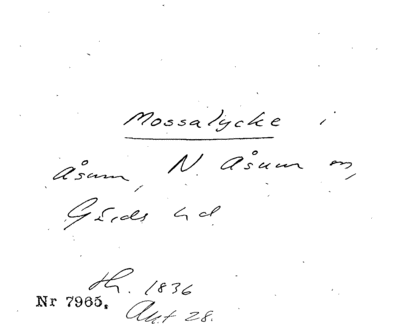 Mossalycke i
Åsum, N. Åsum sn,
Gärds hd
Nr 7965. Akt 28.
1836